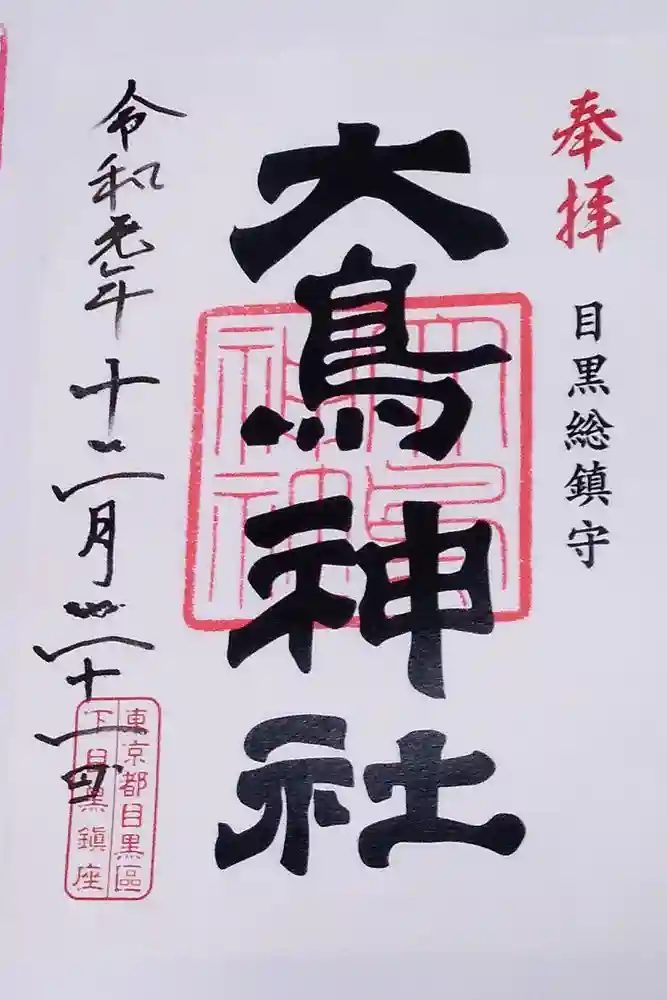 奉拝
目黒総鎮守
大鳥神社
令和元年十二月三十一日
東京都目黒區
下目黒鎮座